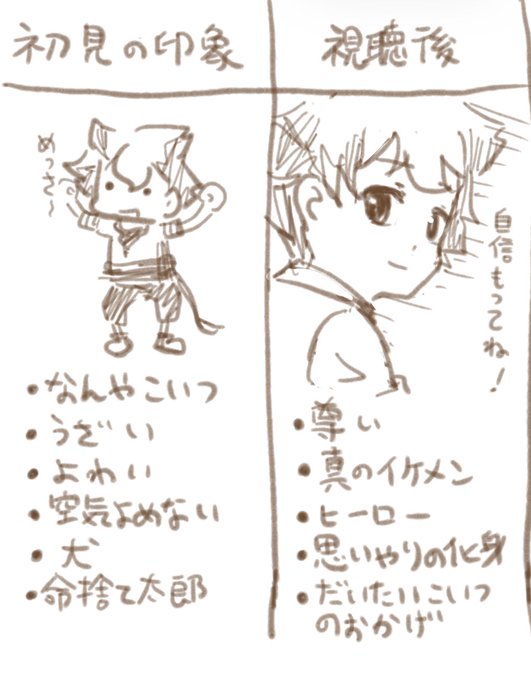 初見の印象
めっさ〜
・なんやこいつ
・うざい
・よわい
・空気よめない
・犬
・命捨て太郎
視聴後
自信もってね！
・尊い
・真のイケメン
・ヒーロー
・思いやりの化身
・だいたいこいつ
のおかげ